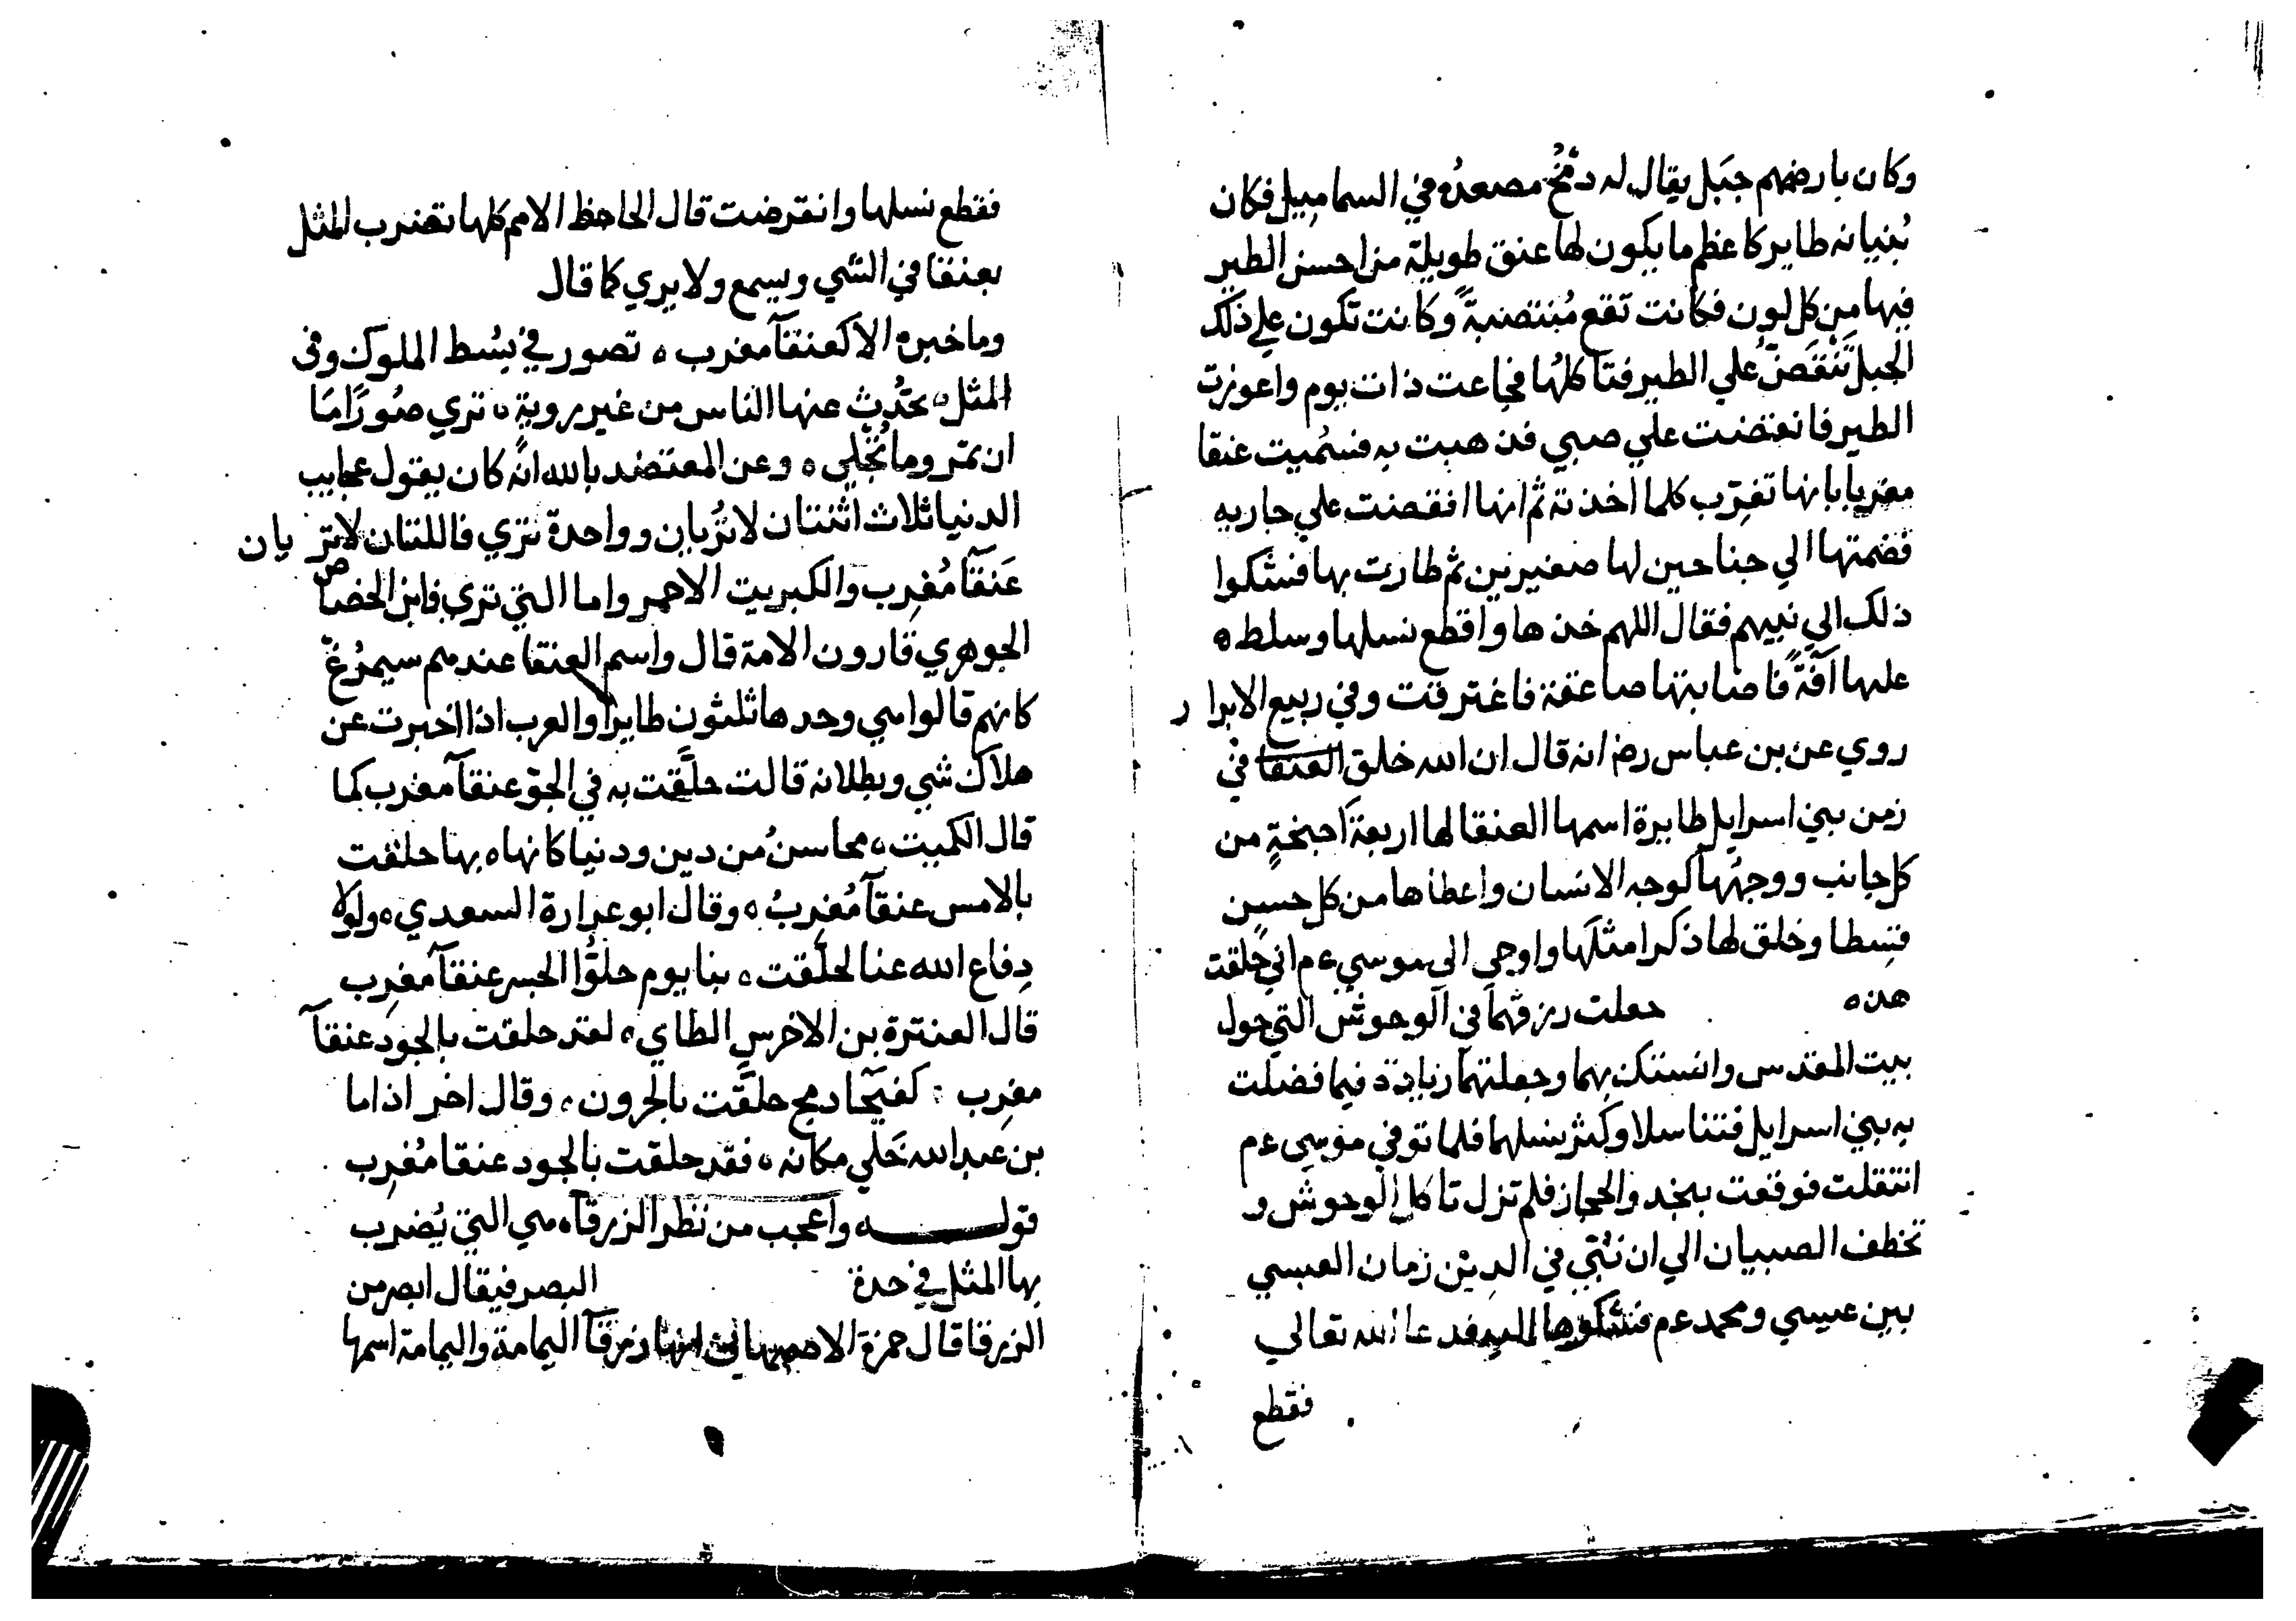 وكان بارضهم جبَل يقال له دمْخُ مصعدُه في السما مِيل فكان
بُنيانه طاير كاعظم ما يكون لها عنق طويلة من احسن الطير
فيها من كل لون فكانت تقع مُنتصبةً وكانت تكون علي ذلك
الجبل تَنْقَضّ علي الطير فتاكلُها فجاعت ذات يوم واعوزت
الطير فانقضت علي صبي فذهبت به فسُميت عنقا
مغربا بانها تغرّب كلما اخذته ثم انها انقضت علي جاريه
فضمتها الي جناحين لها صغيرين ثم طارت بها فشكوا
ذلك الي نبيهم فقال اللهم خذها واقطع نسلها وسلط ه
عليها آفةً فاصابتها صاعقة فاغترقت وفي ربيع الابرار
روي عن بن عباس رض انه قال ان الله خلق العنقا في
زمن بني اسرايل طايرة اسمها العنقا لها اربعة اجنحةٍ من
كل جانب ووجهُها كوجه الانسان واعطاها من كل حسن
قسطا وخلق لها ذكرا مثلَها واوحي الي موسي عم اني خلقت
هذه جعلت رزقهما في الوحوش التي حول
بيت المقدس وانستك بهما وجعلتهما زيادة فيما فضلت
به بني اسرايل فتناسلا وكثر نسلهما فلما توفي موسى عم
انتقلت فوقعت بنجد والحجاز فلم تزل تاكل الوحوش و
تخطف الصبيان الي ان نُبّي في الدين زمان العبسي
بين عيسي ومحمد عم فشكوها اليه فدعا الله تعالي
فقطع
فقطع نسلها وانقرضت قال الحاحظ الامم كلها تضرب المثل
بعنقا في الشي ويسمع ولا يري كما قال
وما خبره الا كعنقآ مغرب ه تصور في بسُط الملوك وفي
المثل ه يحدّث عنها الناس من غير روية ه تري صُورًا ما
ان تمر وما تُجْلي ه وعن المعتضد بالله انه كان يقول عجايب
الدنيا ثلاث اثنتان لا تُريان وواحدة تري فاللتان لا تريان
عَنقآ مُغرِب والكبريت الاحمر واما التي تري فابن الخصاص
الجوهري قارون الامة قال واسم العنقا عندهم سيمرُغْ
كانهم قالوا هي وحدها ثلثون طايرا والعرب اذا اخبرت عن
هلاك شي وبطلانه قالت حلَّقت به في الجوّ عنقآ مغرب كما
قال الكميت ه محاسنُ من دين ودنيا كانها ه بها حلقت
بالامس عنقآ مُغرِبُ ه وقال ابو عرارة السعدي ه ولولا
دِفاع الله عنا لحلّقت ه بنا يوم حلوّا الجسر عنقآ مغرِب
قال العنترة بن الاخرس الطاي ه لقد حلقت بالجود عنقآ
مغرِب كفتخا دمخ حلَّقت بالحرون ه وقال اخر اذا ما
بن عبد الله خَلي مكانه ه فقد حلقت بالجود عنقا مُغرِب
قوله واعجب من نظر الزرقآ ه هي التي يُضرب
بها المثل في حدة البصر فيقال ابصر من
الزرقا قال حمزة زرقآ اليمامة واليمامة اسمها